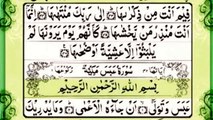 فِيْمَ اَنْتَ مِنْ ذِكْرٰىهَا اِلٰى رَبِّكَ مُنْتَهٰىهَا اِنَّمَاۤ
اَنْتَ مُنْذِرُ مَنْ يَّخْشٰىهَا كَاَنَّهُمْ يَوْمَ يَرَوْنَهَا لَمْ
يَلْبَثُوْۤا اِلَّا عَشِيَّةً اَوْ ضُحٰىهَا
سُوْرَةُ عَبَسَ مَكِّيَّةٌ
بِسْمِ اللّٰهِ الرَّحْمٰنِ الرَّحِيْمِ
عَبَسَ وَتَوَلّٰىۤ اَنْ جَآءَهُ الْاَعْمٰى وَمَا يُدْرِيْكَ